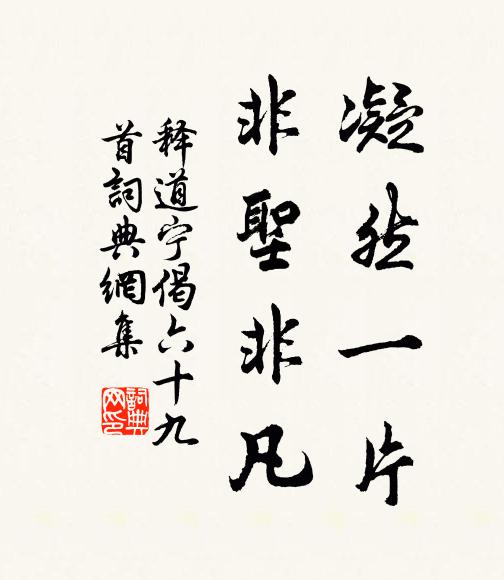 凝然一片
非聖非凡
释道宁偈六十九
首詞典網集
詞典
网印